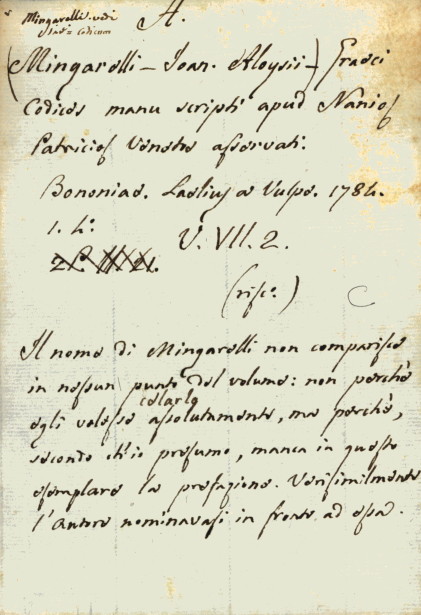 Mingarelli. vedi
A.
(Mingarelli - Ioan. Aloysii -) Graeci
Codices manu scripti apud Naniof
Patriciof Venetos afservati.
Bononiae. Laelius a Vulpe. 1784.
1. 4.º
V. VII. 2.
(rifc.º)
Il nome di Mingarelli non comparisce
in nessun punto del volume: non perchè
celarlo
egli volefse afsolutamente, ma perchè,
secondo ch'io presumo, manca in questo
esemplare la prefazione. Verisimilmente
l'Autore nominavasi in fronte ad efsa.